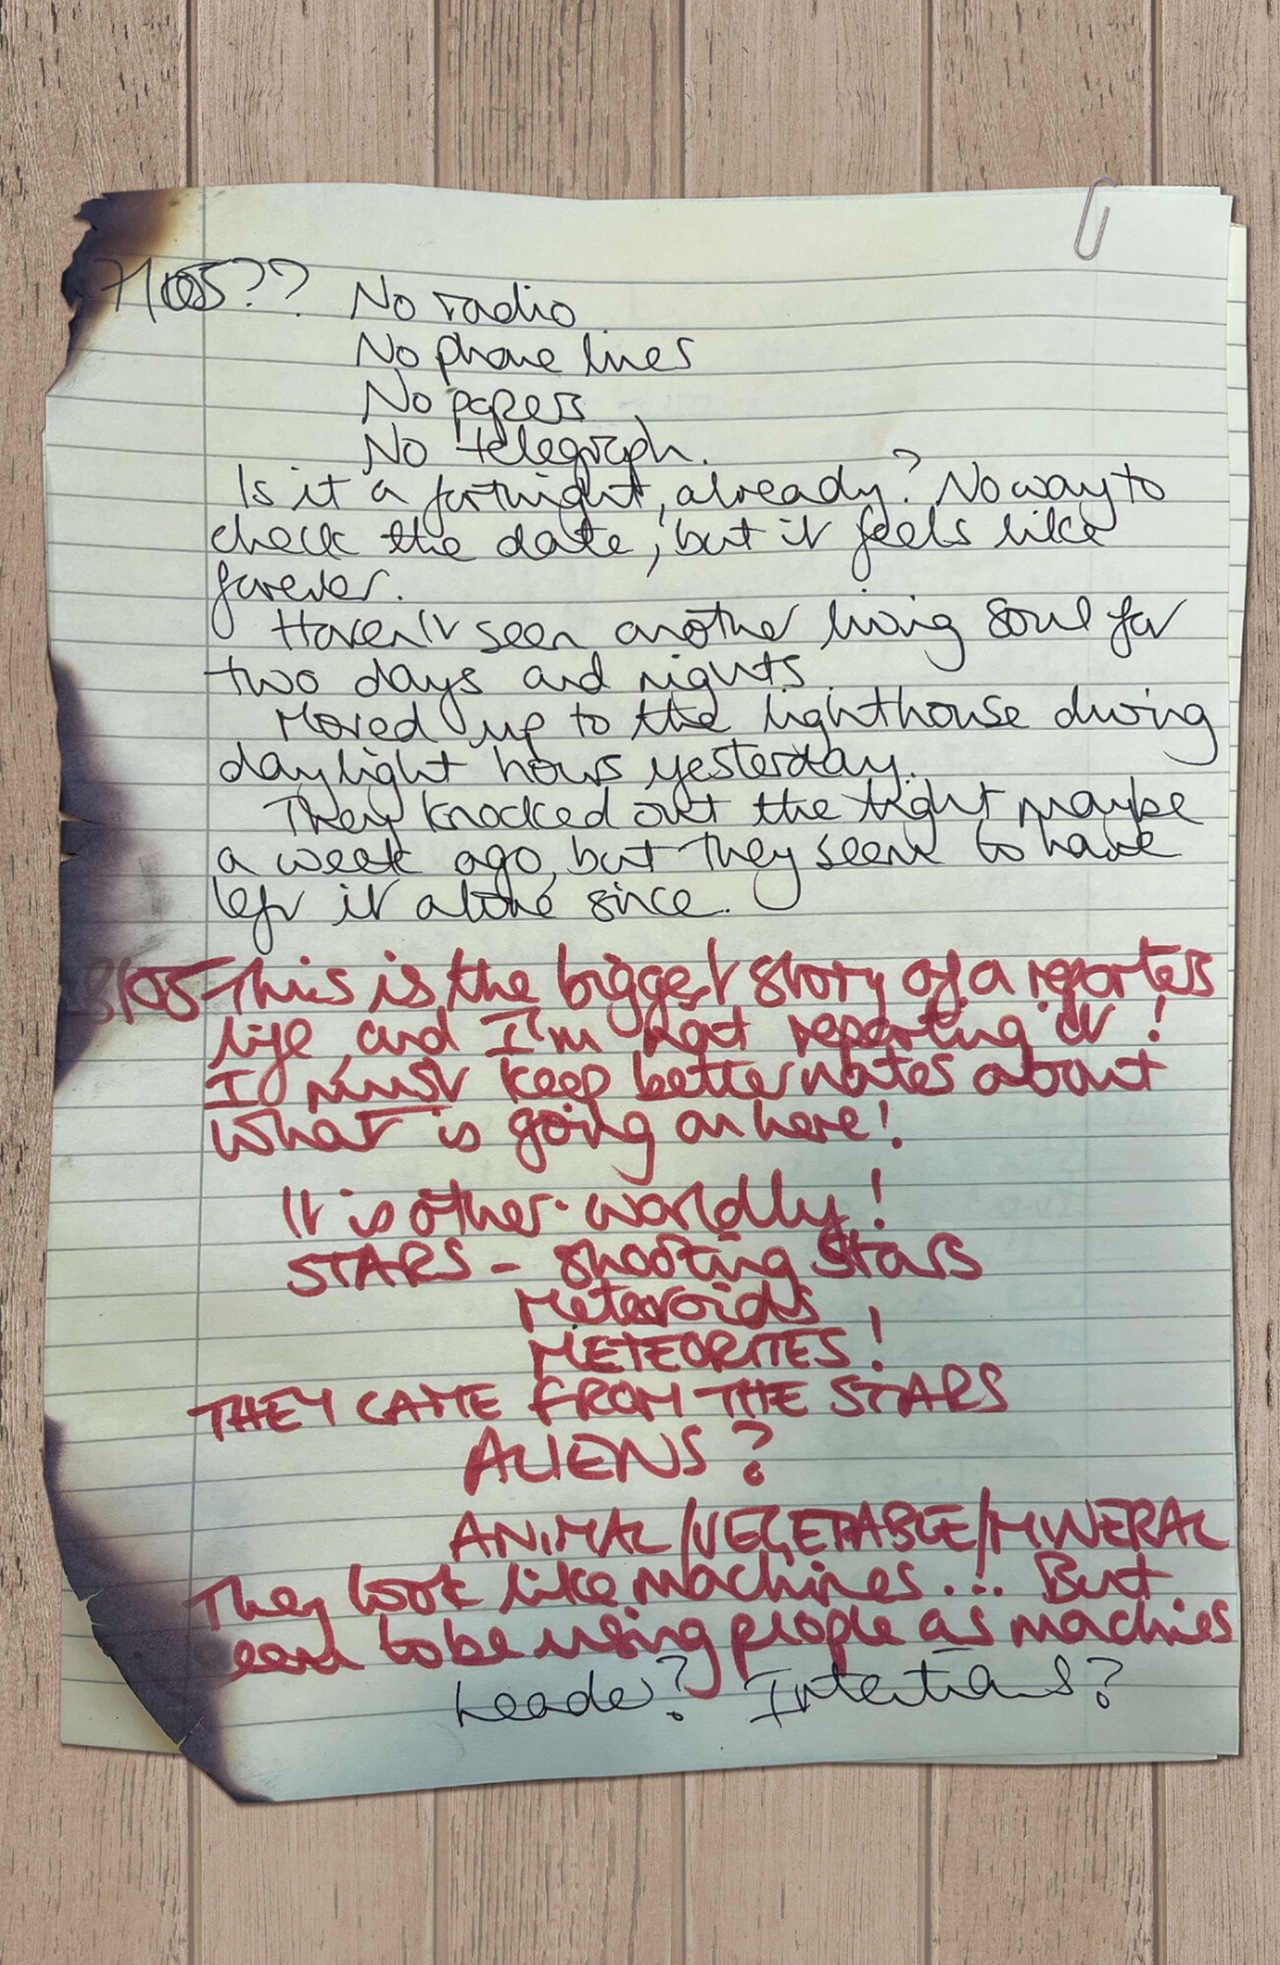 7/05?? No radio
No phone lines
No papers
No telegraph.
Is it a fortnight, already? No way to
check the date, but it feels like
forever.
Haven't seen another living soul for
two days and nights.
Moved up to the lighthouse during
daylight hours yesterday.
They knocked out the light maybe
a week ago, but they seem to have
left it alone since.
8/05 This is the biggest story of a reporters
life, and I'm not reporting it!
I must keep better notes about
what is going on here!
It is other-worldly!
STARS - shooting stars
Meteroids
METEORITES!
THEY CAME FROM THE STARS
ALIENS?
ANIMAL/VEGETABLE/MINERAL
They look like machines... But
seem to be using people as machies
Leader? Intentions?